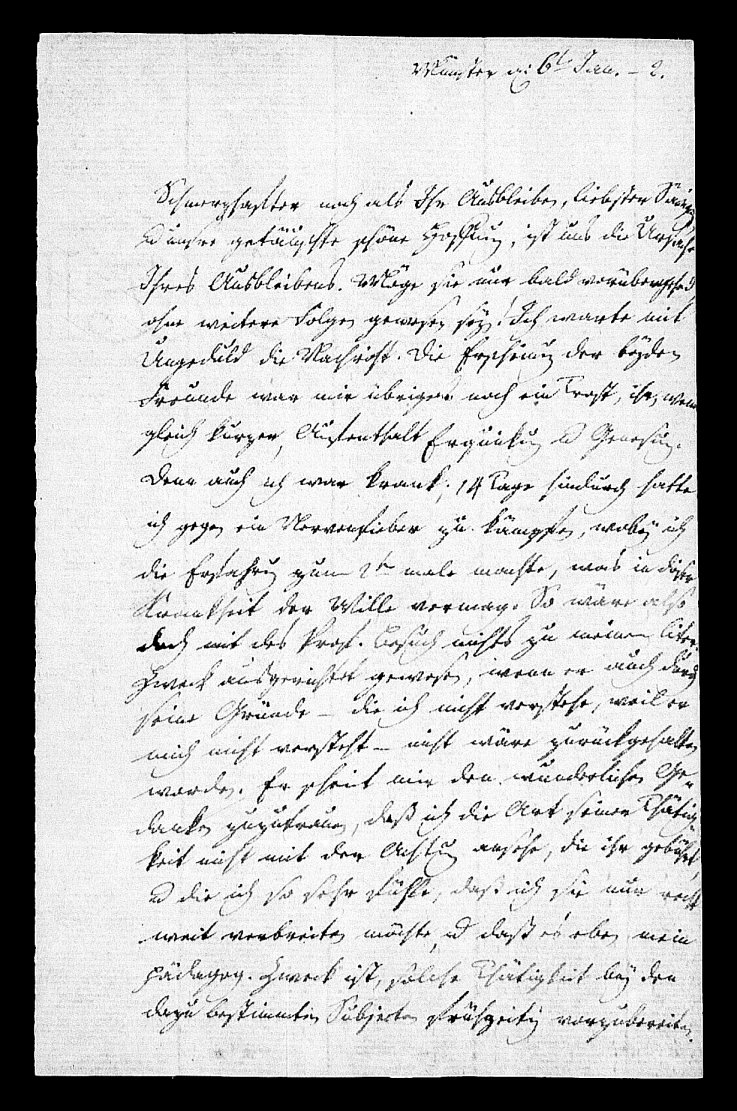 Münster d: 6t Jan. – 2.
Schmerzhafter noch als Ihr Ausbleiben, liebster
u unsre getäuschte schöne Hoffnung, ist uns die Ursache
Ihres Ausbleibens. Möge sie nur bald vorübergehend
ohne weitere Folgen gewesen seyn! Ich warte mit
Ungeduld die Nachricht. Die Erscheinung der beyden
Freunde war mir übrigens noch ein Trost, ihr, wenn
gleich kurzer, Aufenthalt Erquickung u Genesung.
Denn auch ich war krank; 14 Tage hindurch hatte
ich gegen ein Nervenfieber zu kämpfen, wobey ich
die Erfahrung zum 2ten male machte, was in dieser
Krankheit der Wille vermag. So wäre also
doch mit des Prof. Besuch nichts zu meinem liter.
Zweck ausgerichtet gewesen, wenn er auch durch
seine Gründe – die ich nicht verstehe, weil er
mich nicht versteht – nicht wäre zurückgehalten
worden. Er scheint mir den wunderlichen Ge-
danken zuzutrauen, daß ich die Art seiner Thätig-
keit nicht mit der Achtung ansehe, die ihr gebührt,
u die ich so sehr fühle, daß ich sie nur recht
weit verbreiten möchte, u daß es eben mein
pädagog. Zweck ist, solche Thätigkeit bey den
dazu bestimmten Subjecten frühzeitig vorzubereiten.